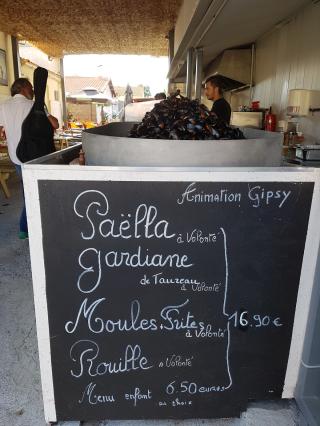 Animation Gipsy
Paëlla à Volonté
gardiane
de Taureau à Volonté
Moules Frites
à Volonté
16.90€
Rouille à Volonté
Menu enfant 6.50 euros
au choix